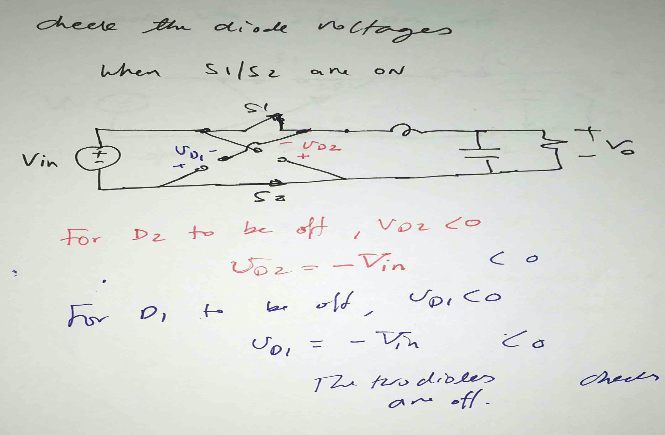 check the diode voltages
when S1/S2 are ON
S1
Vin + - + VD1 - - VD2 + + Vo -
S2
For D2 to be off, VD2 < 0
VD2 = - Vin < 0
For D1 to be off, VD1 < 0
VD1 = - Vin < 0
The two diodes checks
are off.